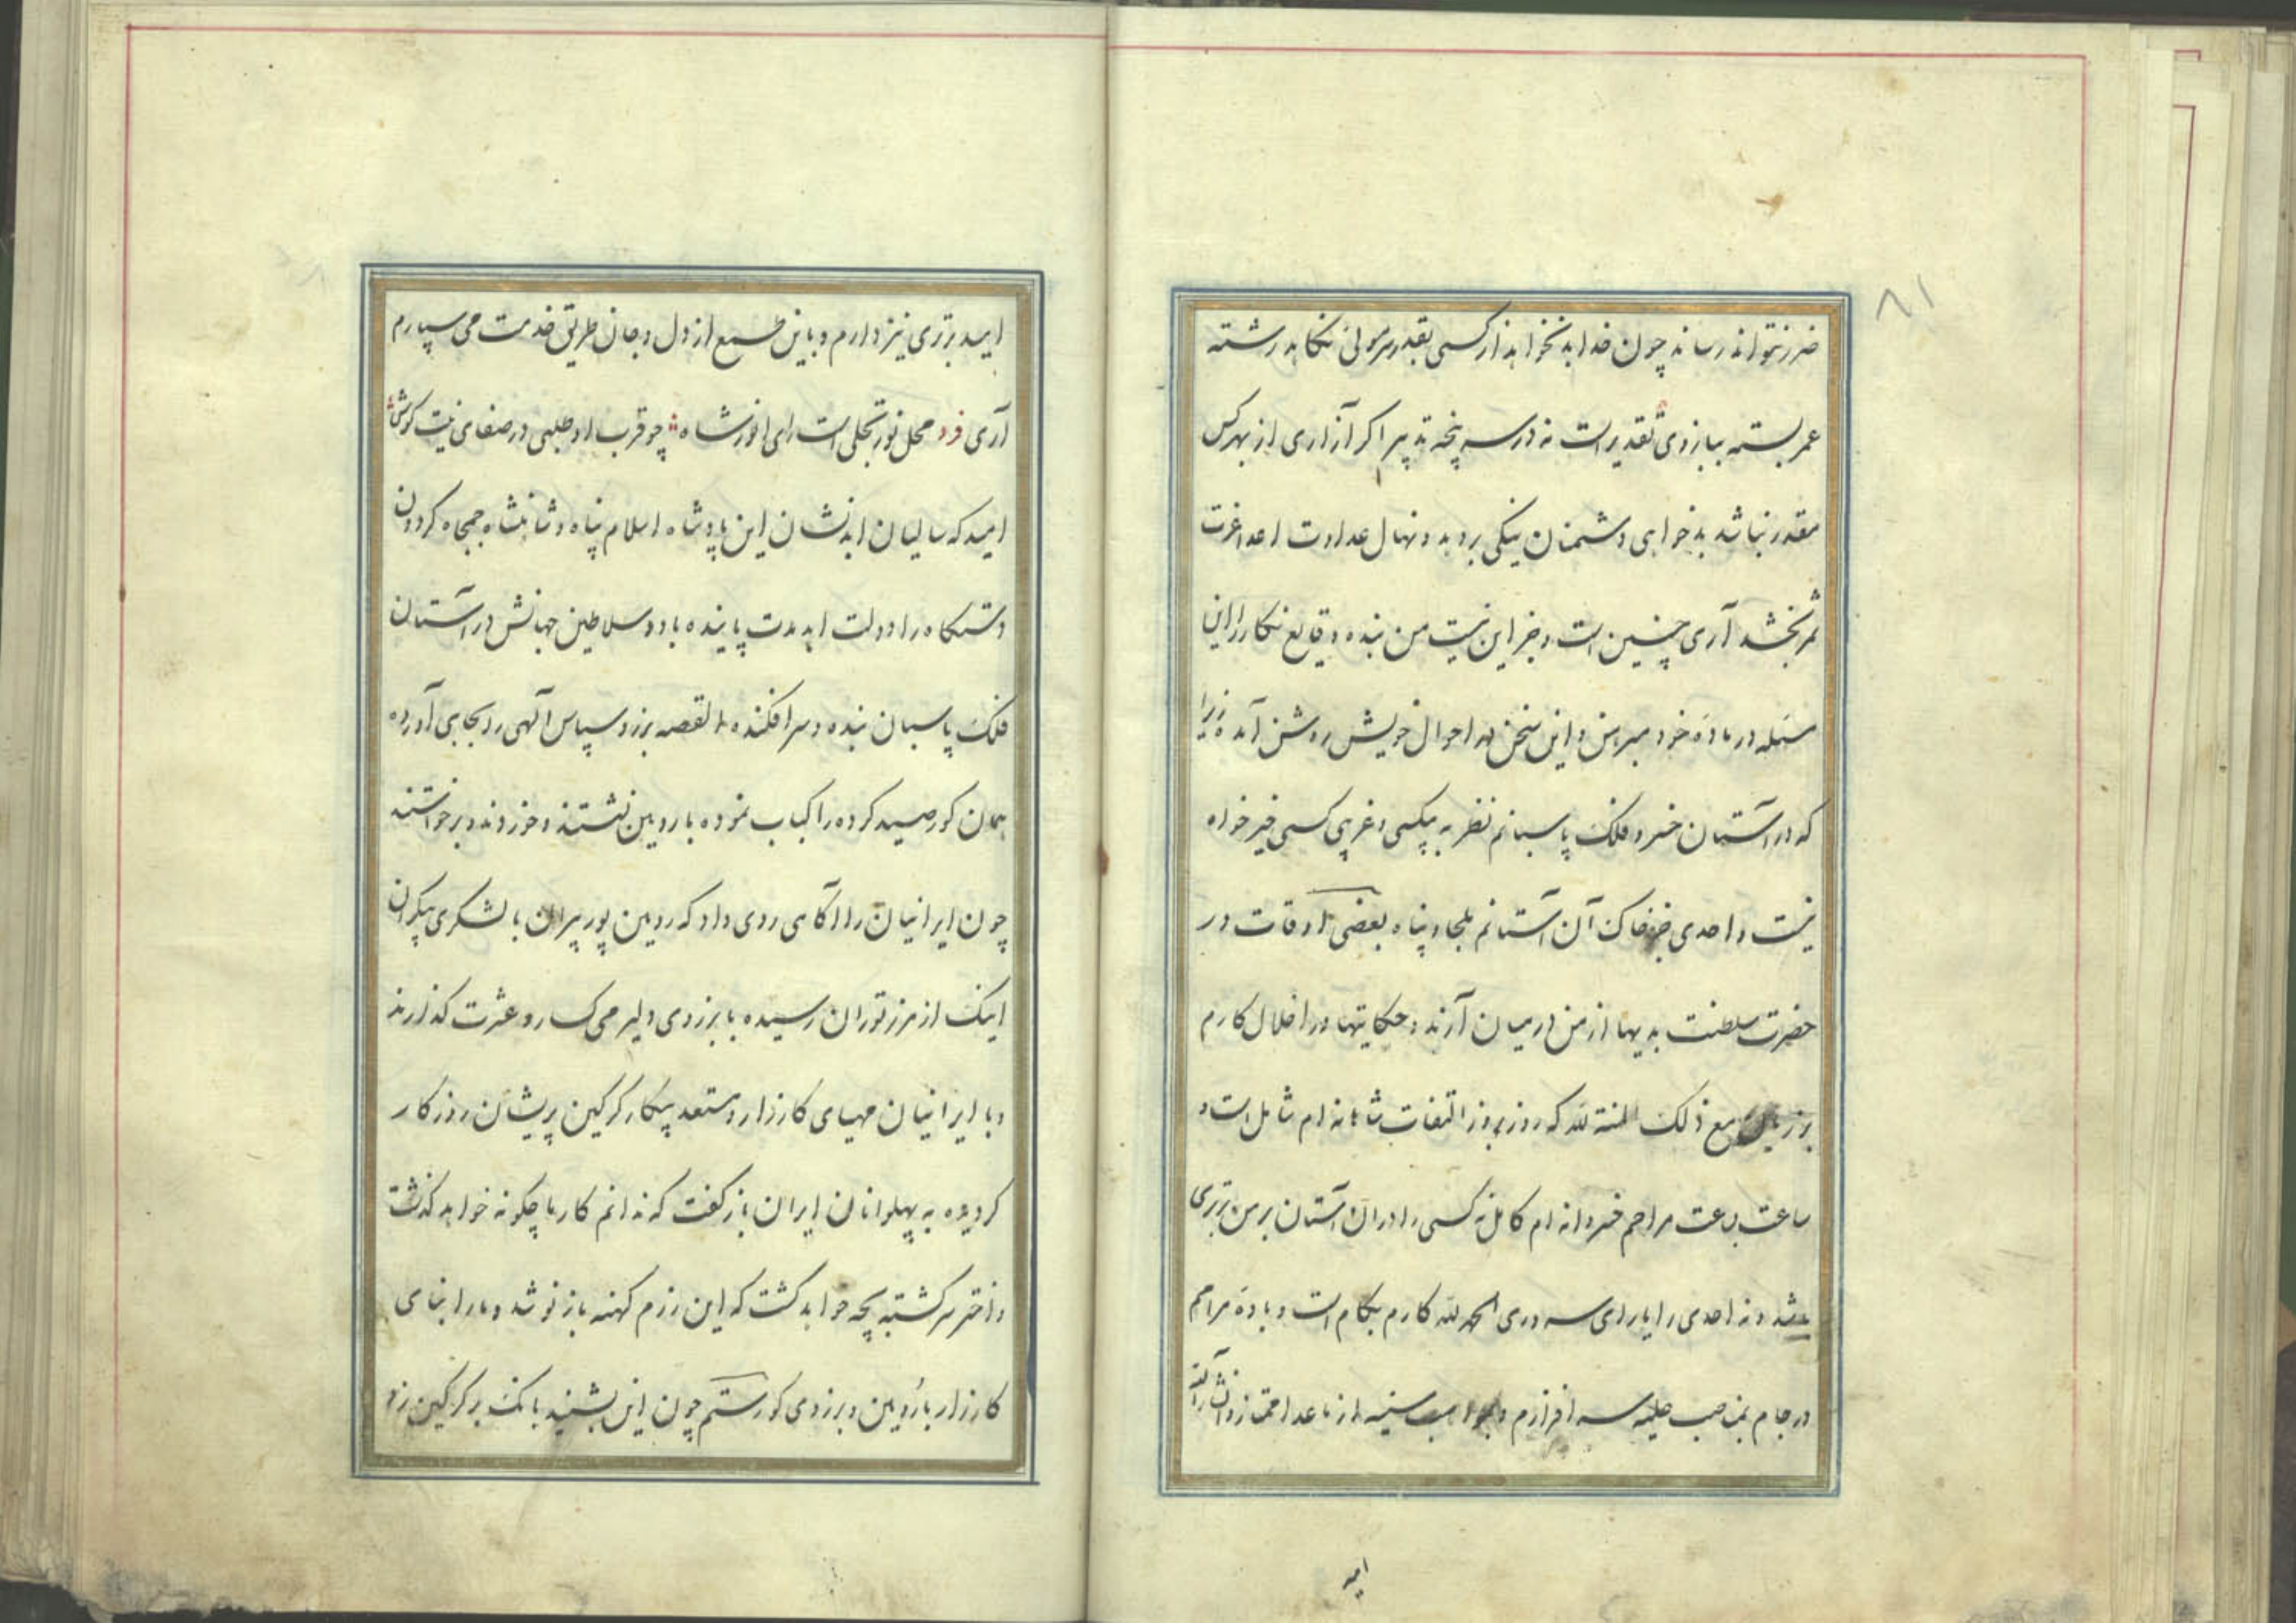 ۸۱
ضرر نتواند رساند چون خدا بد نخواهد از کسی بقدر سر موئی نکاهد رشته
عمر بسته ببازوی تقدیر است نه در سر پنجه تدبیر اکر آزاری از بهر کس
مقدر نباشد بدخواهی دشمنان نیکی بر دهد و نهال عداوت اعدا عزت
ثمر بخشد آری چنین است و جز این نیست من بنده وقایع نکار را این
مسئله در ماده خود مبرهن و این سخن در احوال خویش روشن آمده زیرا
که در آستان خسرو فلک پاسبانم نظر به بیکسی و غریبی کسی خیر خواه
نیست و احدی جز خاک آن آستانم ملجا و پناه بعضی اوقات در
حضرت سلطنت بدیها از من در میان آرند و حکایتها در اخلال کارم
بر زبان مع ذلک المنة لله که روز بروز التفات شاهانه ام شامل است و
ساعت بساعت مراحم خسروانه ام کامل نه کسی را در آن آستان بر من برتری
باشد و نه احدی را یارای سروری الحمد لله کارم بکام است و باده مراحم
در جام بمناصب جلیله سر افرازم و از ما عدا ممتاز و
امید
امید برتری نیز دارم و باین طمع از دل و جان طریق خدمت می سپارم
آری فرد محل نور تجلی است رای انور شاه چو قرب او طلبی در صفای نیت کوش
امید که سالیان ابد نشان این پادشاه اسلام پناه و شاهنشاه جمجاه کردون
دستکاه را دولت ابد مدت پاینده باد و سلاطین جهانش در آستان
فلک پاسبان بنده و سر افکنده القصه برزو سپاس آلهی را بجای آورده
همان کور صید کرده را کباب نموده با رویین نشستند و خوردند و برخواستند
چون ایرانیان را آکاهی روی داد که رویین پور پیران با لشکری بیکران
اینک از مرز توران رسیده با برزوی دلیر می کسار و عشرت کذارند
و با ایرانیان مهیای کارزار و مستعد پیکار کرکین پریشان روزکار
کردیده به پهلوانان ایران باز کفت که ندانم کار ما چکونه خواهد کذشت
و اختر سرکشته بچه خواهد کشت که این رزم کهنه باز نو شد و ما را بنای
کارزار با رویین و برزوی کو رستم چون این بشنید بانک بر کرکین زد